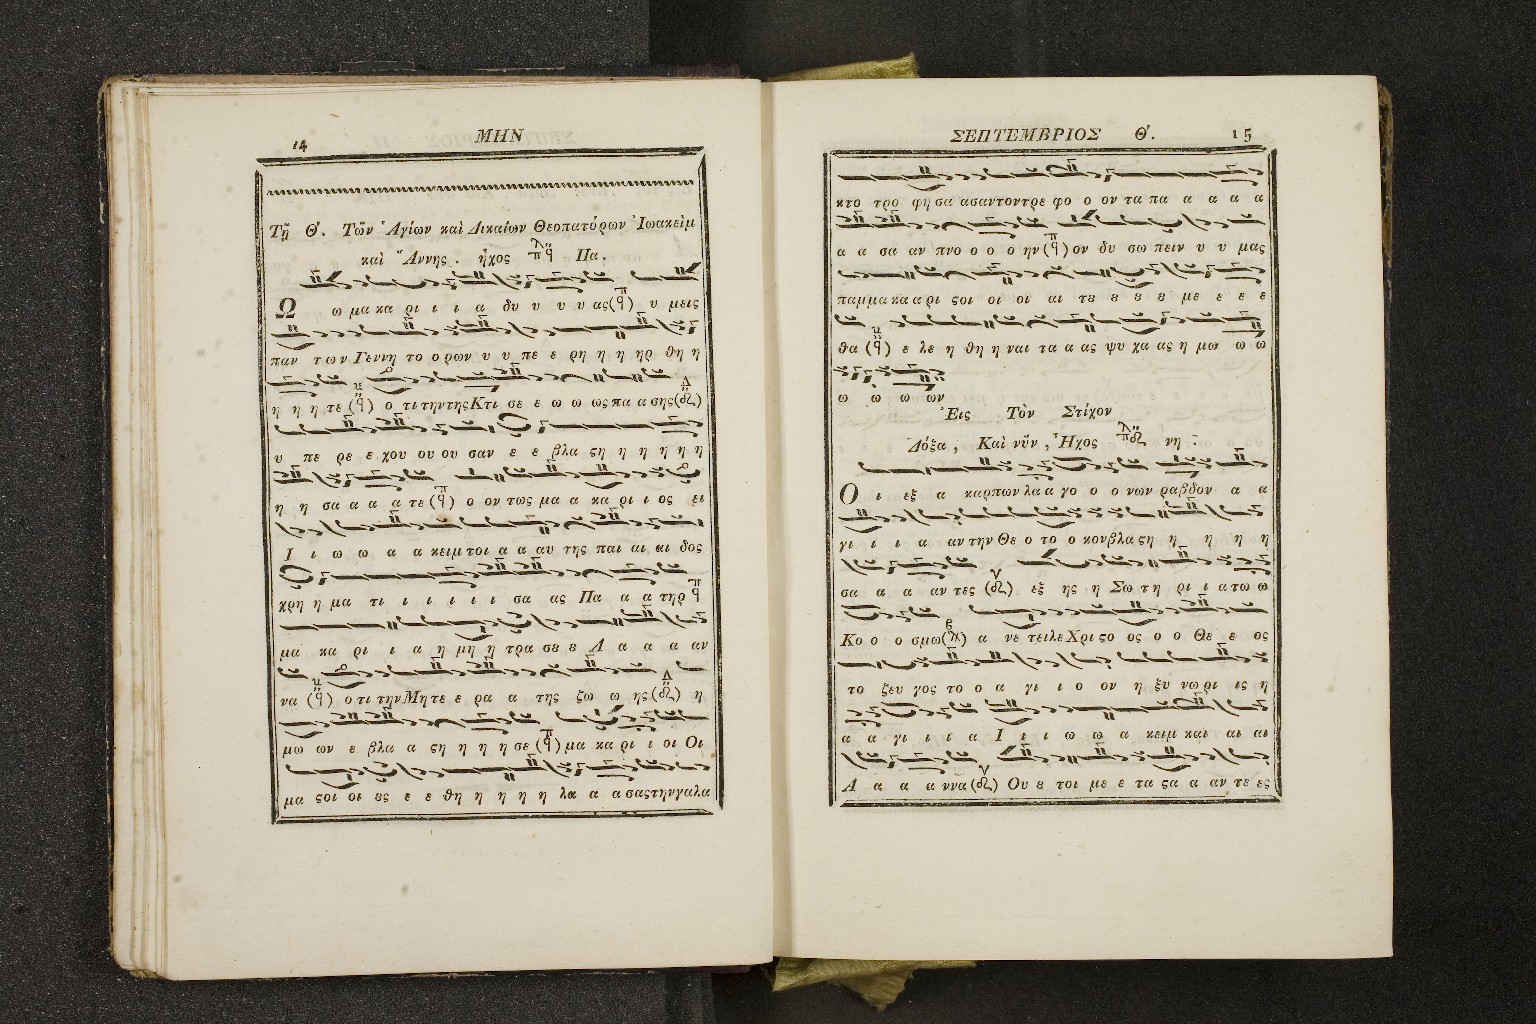 14 ΜΗΝ
Τῇ Θ΄. Τῶν Ἁγίων καὶ Δικαίων Θεοπατόρων Ἰωακεὶμ
καὶ Ἄννης. ἦχος Πα.
Ω ω μα κα ρι ι ι α δυ υ υ υ ας υ μεις
παν των Γεννη το ο ρων υ υ πε ε ρη η η ηρ θη η
η η η τε ο τι την της Κτι σε ε ω ω ως πα α σης
υ πε ρε ε χου ου ου σαν ε ε βλα ςη η η η η η
η η σα α α α τε ο ον τως μα α κα ρι ι ος ει
Ι ι ω ω α α κειμ τοι α α αυ της παι αι αι δος
χρη η μα τι ι ι ι ι ι σα ας Πα α α τηρ
μα κα ρι ι α η μη η τρα σȣ ȣ Α α α α αν
να ο τι την Μητε ε ρα α της ζω ω ης η
μω ων ε βλα α ςη η η η σε μα κα ρι ι οι Οι
μα ςοι οι ȣς ε ε θη η η η η λα α α σας την γαλα
ΣΕΠΤΕΜΒΡΙΟΣ Θ΄. 15
κτο τρο φη σα ασαντοντρε φο ο ον τα πα α α α α
α α σα αν πνο ο ο ο ην ον δυ σω πειν υ υ μας
παμμακα α ρι ςοι οι οι αι τȣ ȣ ȣ ȣ με ε ε ε
θα ε λε η θη η ναι τα α ας ψυ χα ας η μω ω ω
ω ω ω ω ων
Εις Τὸν Στίχον
Δόξα, Καὶ νῦν, Ἦχος νη
Ο ι εξ α καρπων λα α γο ο ο νων ραβδον α α
γι ι ι α αν την Θε ο το ο κον βλα ςη η η η η
σα α α αν τες εξ ης η Σω τη ρι ι α τω ω
Κο ο ο σμω α νε τειλε Χρι ςο ος ο ο Θε ε ος
το ζευ γος το ο α γι ι ο ον η ξυ νω ρι ις η
α α γι ι ι α Ι ι ι ω ω α κειμ και αι αι
Α α α α ννα Ου ȣ τοι με ε τα ςα α αν τε ες